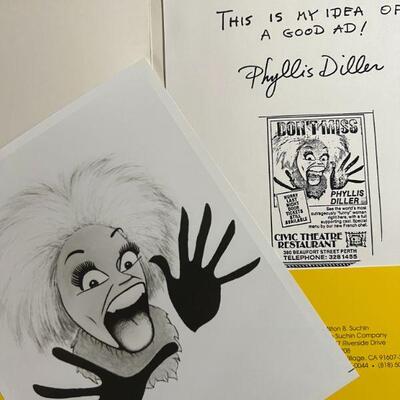 THIS IS MY IDEA OF
A GOOD AD!
Phyllis Diller
DON'T MISS
PHYLLIS
DILLER
HURRY
LAST
NIGHT
DOOR
TICKETS
STILL
AVAILABLE
See the world's most
outrageously "funny" woman
right here, with a full
supporting cast. Special
menu by our new French chef.
CIVIC THEATRE
RESTAURANT
380 BEAUFORT STREET PERTH
TELEPHONE: 3281455
ilton B. Suchin
Suchin Company
7 Riverside Drive
08
illage, CA 91607-
-0044 • (818) 50